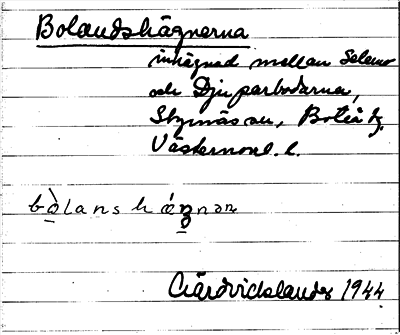 Bolandshägnerna
inhägnad mellan Selene
och Djuparbodarna,
Styrnäs sn, Boteå tg.
Västernorrl. l.
bòlans hǽgnar
Gärdvidslander 1944